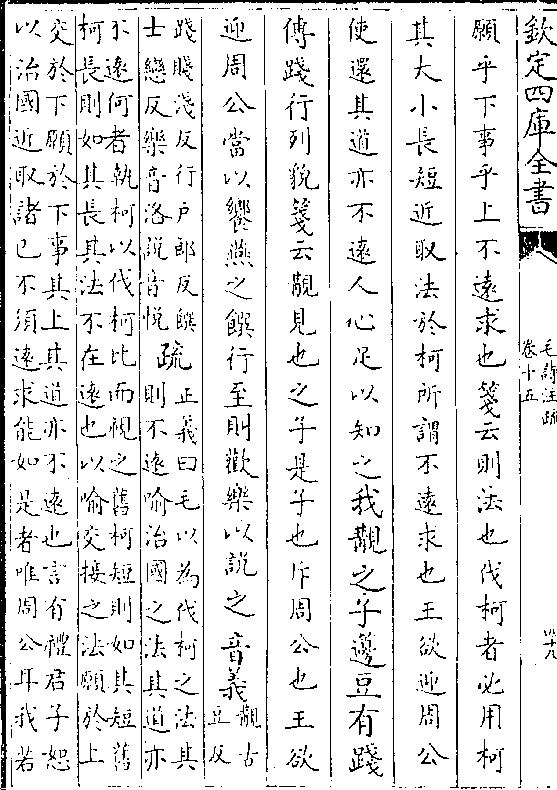 欽定四庫全書
毛詩注疏
卷十五
四十九
願乎下事乎上不遠求也箋云則法也伐柯者必用柯
其大小長短近取法於柯所謂不遠求也王欲迎周公
使還其道亦不遠人心足以知之我覯之子籩豆有踐
傳踐行列貌箋云覯見也之子是子也斥周公也王欲
迎周公當以饗燕之饌行至則歡樂以說之音義覯古
豆反
踐賤淺反行户郎反饌
士戀反樂音洛說音悦疏正義曰毛以為伐柯之法其
則不遠喻治國之法其道亦
不遠何者執柯以伐柯比而視之舊柯短則如其短舊
柯長則如其長其法不在遠也以喻交接之法願於上
交於下願於下事其上其道亦不遠也言有禮君子恕
以治國近取諸已不須遠求能如是者唯周公耳我若